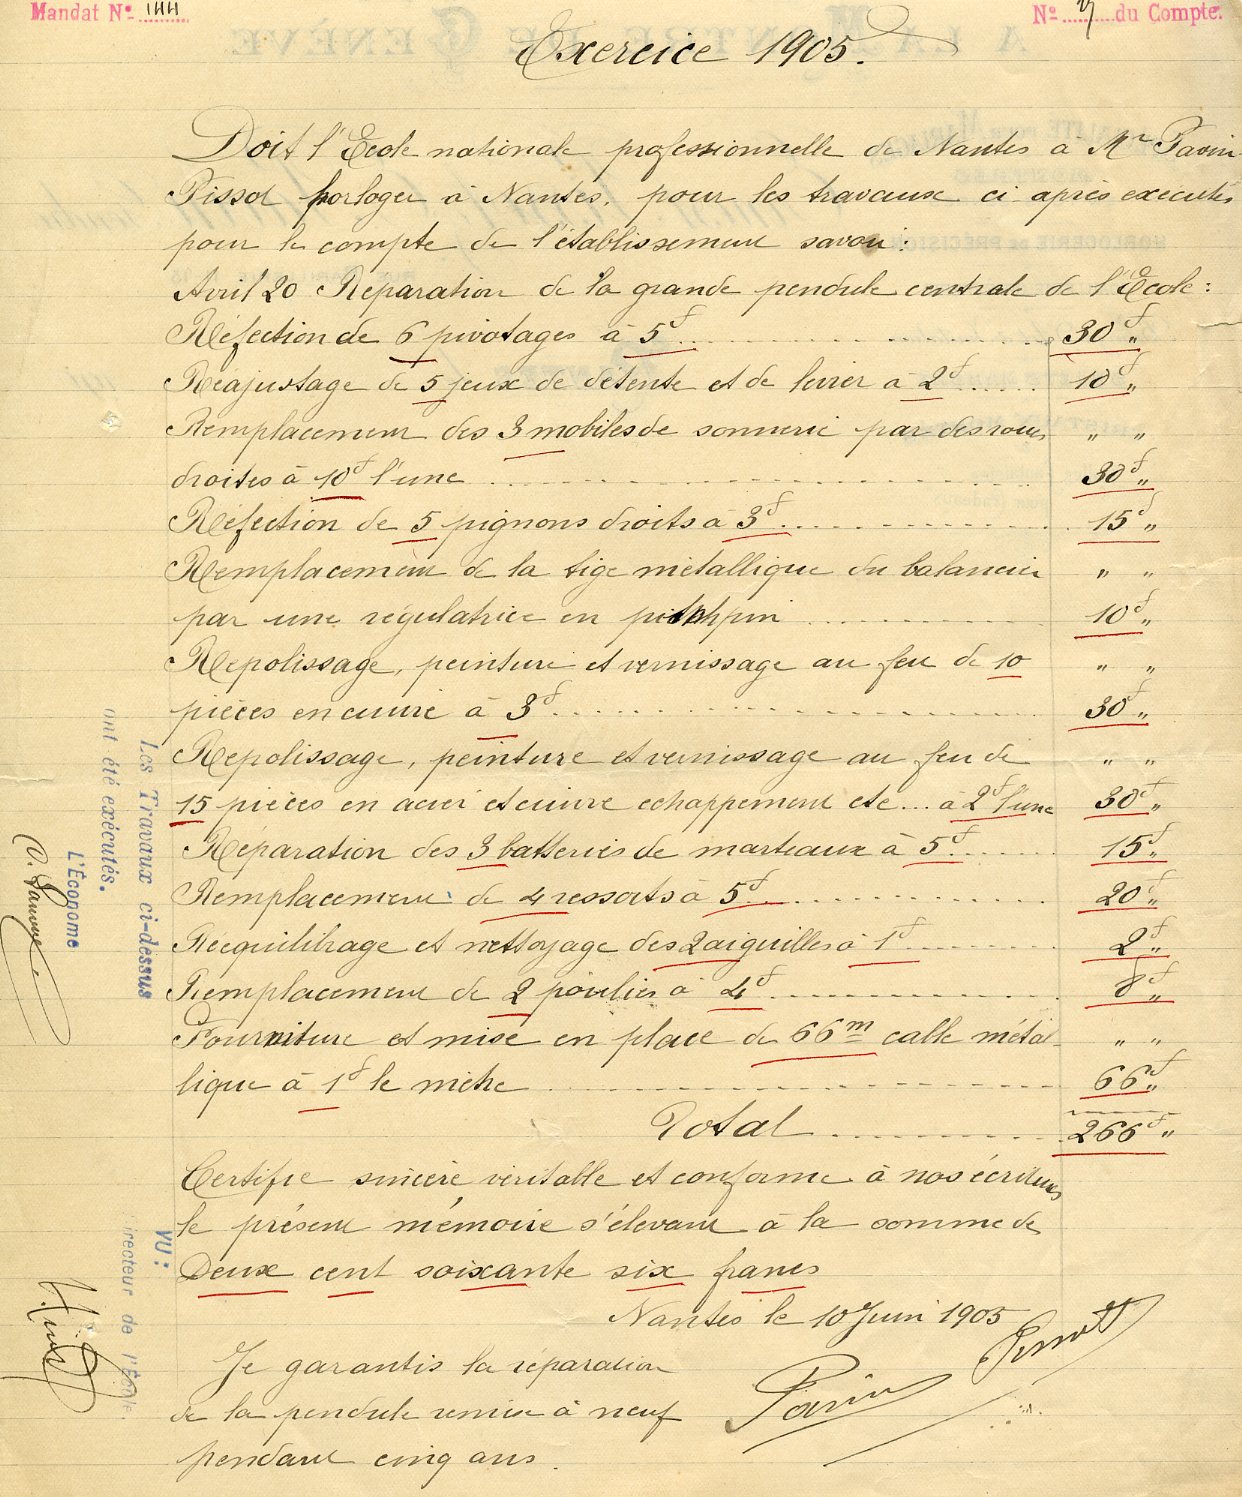 Mandat Nº 144
Nº du Compte.
Exercice 1905.
Doit l'Ecole nationale professionnelle de Nantes à Mr Pavin
Pissot horloger à Nantes, pour les travaux ci après executés
pour le compte de l'établissement savoir :
Avril 20 Réparation de la grande pendule centrale de l'Ecole :
Réfection de 6 pivotages à 5f ........ 30f „
Réajustage de 5 jeux de détente et de levier à 2f ..... 10f „
Remplacement des 3 mobiles de sonnerie par des roues „ „
droites à 10f l'une ........ 30f „
Réfection de 5 pignons droits à 3f ........ 15f „
Remplacement de la tige métallique du balancier „ „
par une régulatrice en pitchpin ........ 10f „
Repolissage, peinture et vernissage au feu de 10 „ „
pièces en cuivre à 3f ........ 30f „
Repolissage, peinture et vernissage au feu de „ „
15 pièces en acier et cuivre echappement etc... à 2f l'une 30f „
Réparation des 3 batteries de marteaux à 5f ..... 15f „
Remplacement de 4 ressorts à 5f ........ 20f „
Réequilibrage et nettoyage des 2 aiguilles à 1f ..... 2f „
Remplacement de 2 poulies à 4f ........ 8f „
Fourniture et mise en place de 66m cable métal- „ „
lique à 1f le mètre ........ 66f „
Total ........ 266f „
Certifie sincère véritable et conforme à nos écritures
le présent mémoire s'élevant à la somme de
Deux cent soixante six francs
Nantes le 10 Juin 1905
Je garantis la réparation
de la pendule remise à neuf
pendant cinq ans.
Pavin Pissot
Les Travaux ci-dessus
ont été exécutés.
L'Économe
VU :
Directeur de l'École.